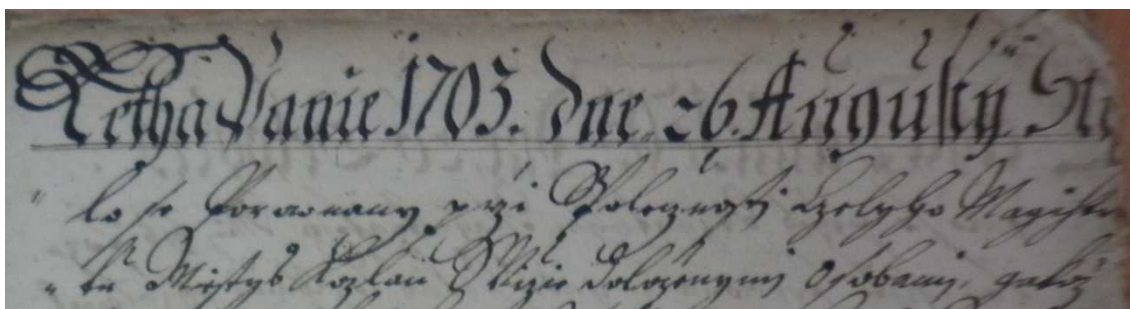 Letha Panie 1703. dne 26. Augusty St
lo se Porovnany przi Poleznosti Czelyho Magistr
tu Mistys Kozlan S Nize Dolozenymi Osobami, gakoz